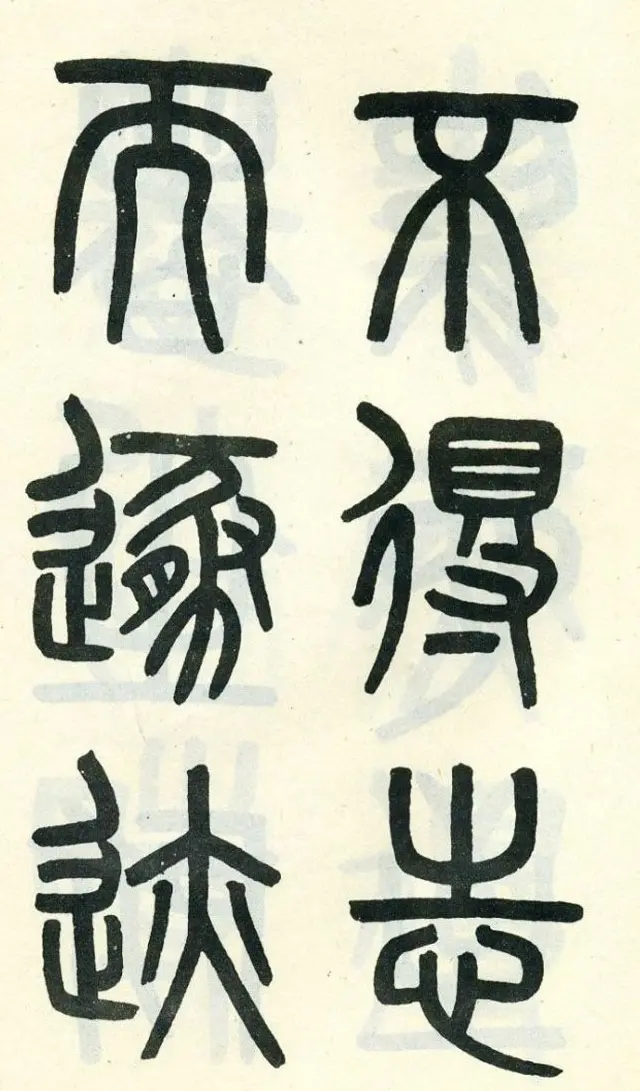 不得志
而遯迹